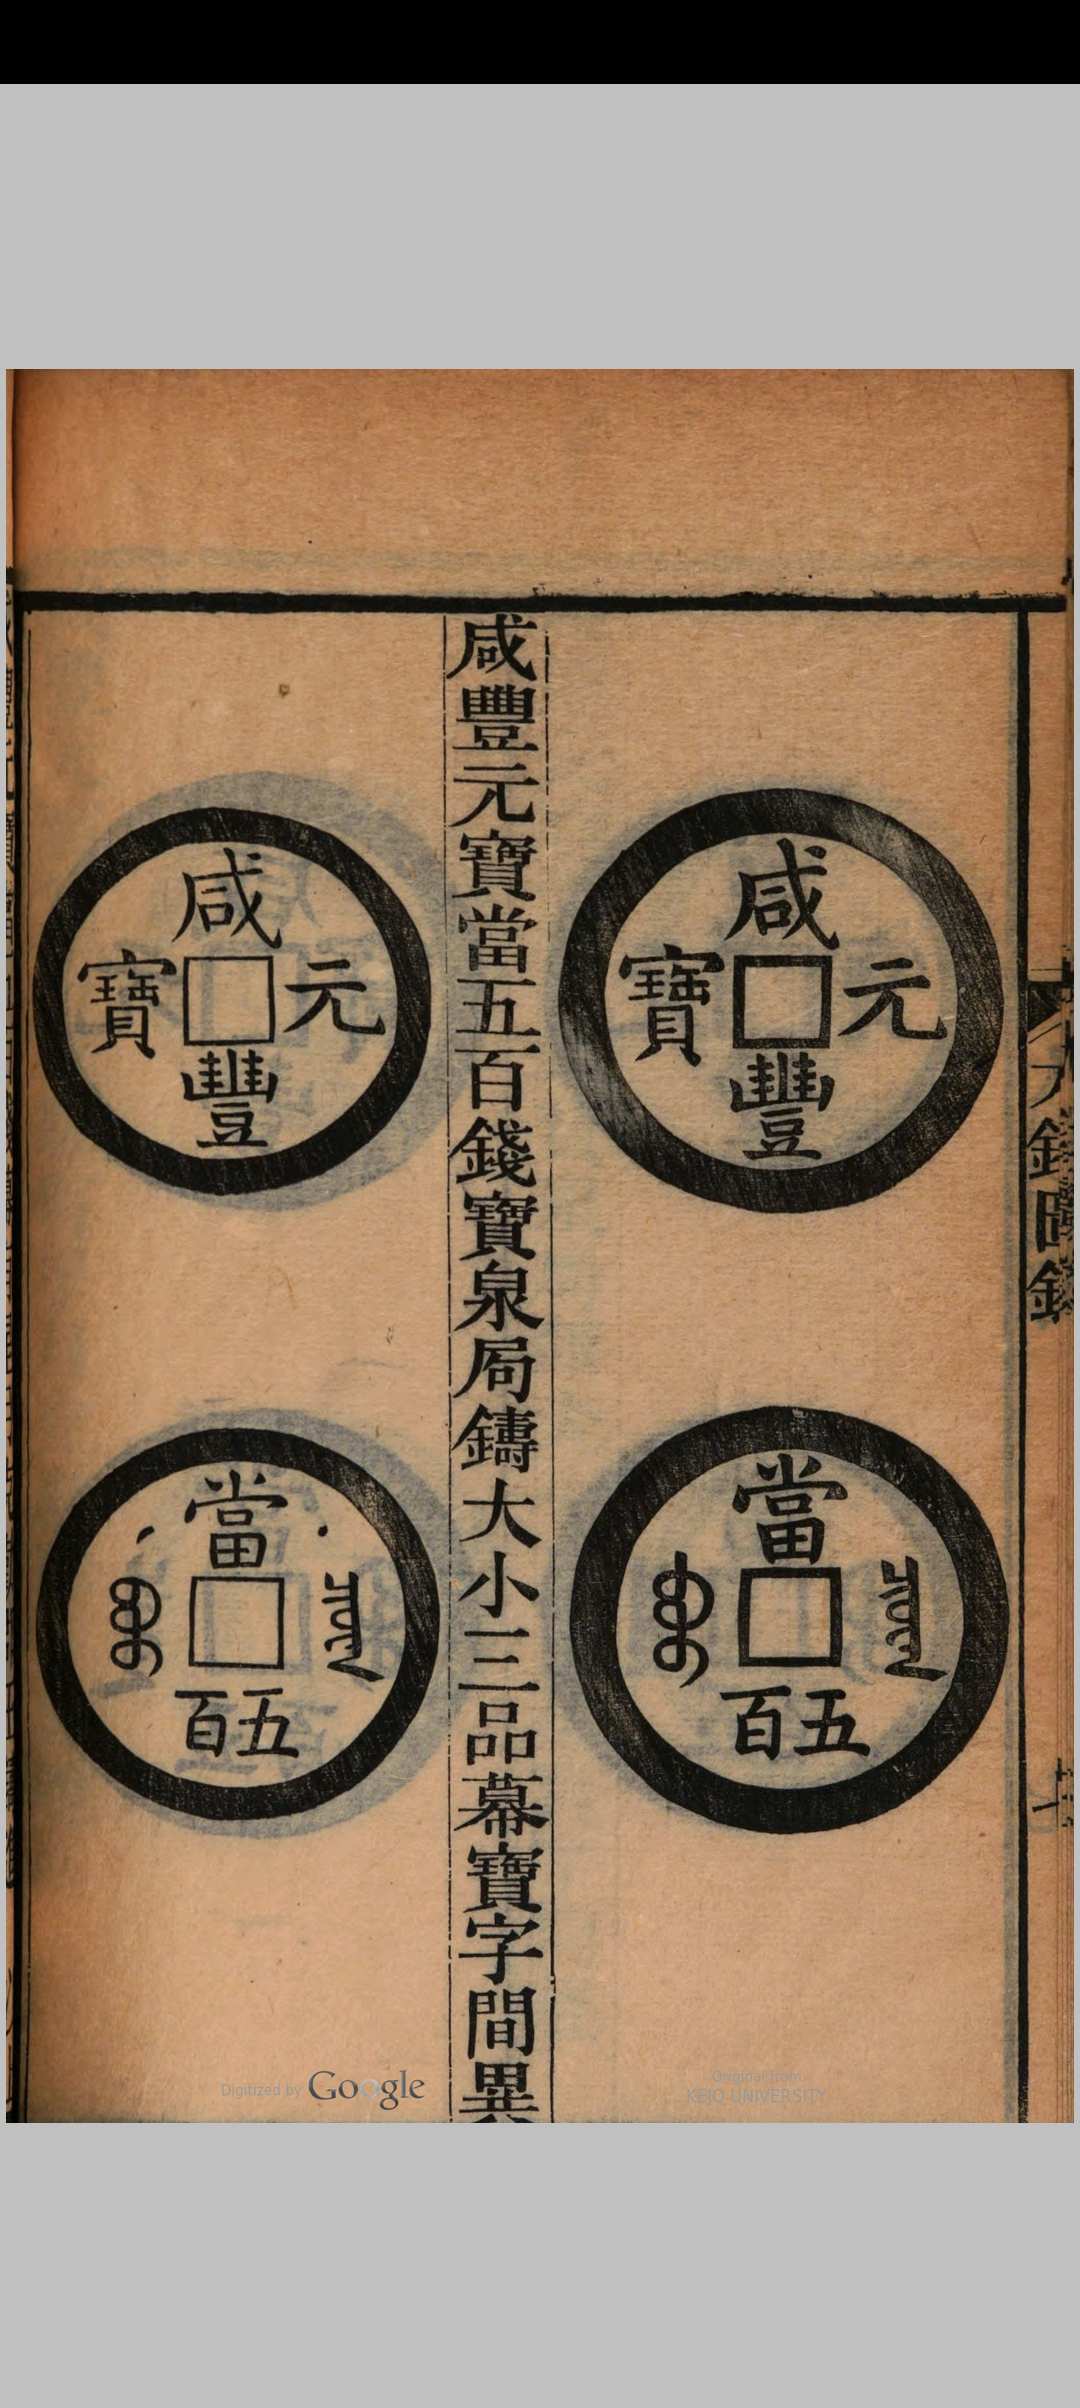 咸豐元寶
當五百
ᠪᠣᠣ ᠴᡳᠣᠸᠠᠨ
咸豐元寶當五百錢寶泉局鑄大小三品幕寶字間異
咸豐元寶
當五百
ᠪᠣᠣ ᠴᡳᠣᠸᠠᠨ
Digitized by Google
Original from
KEIO UNIVERSITY